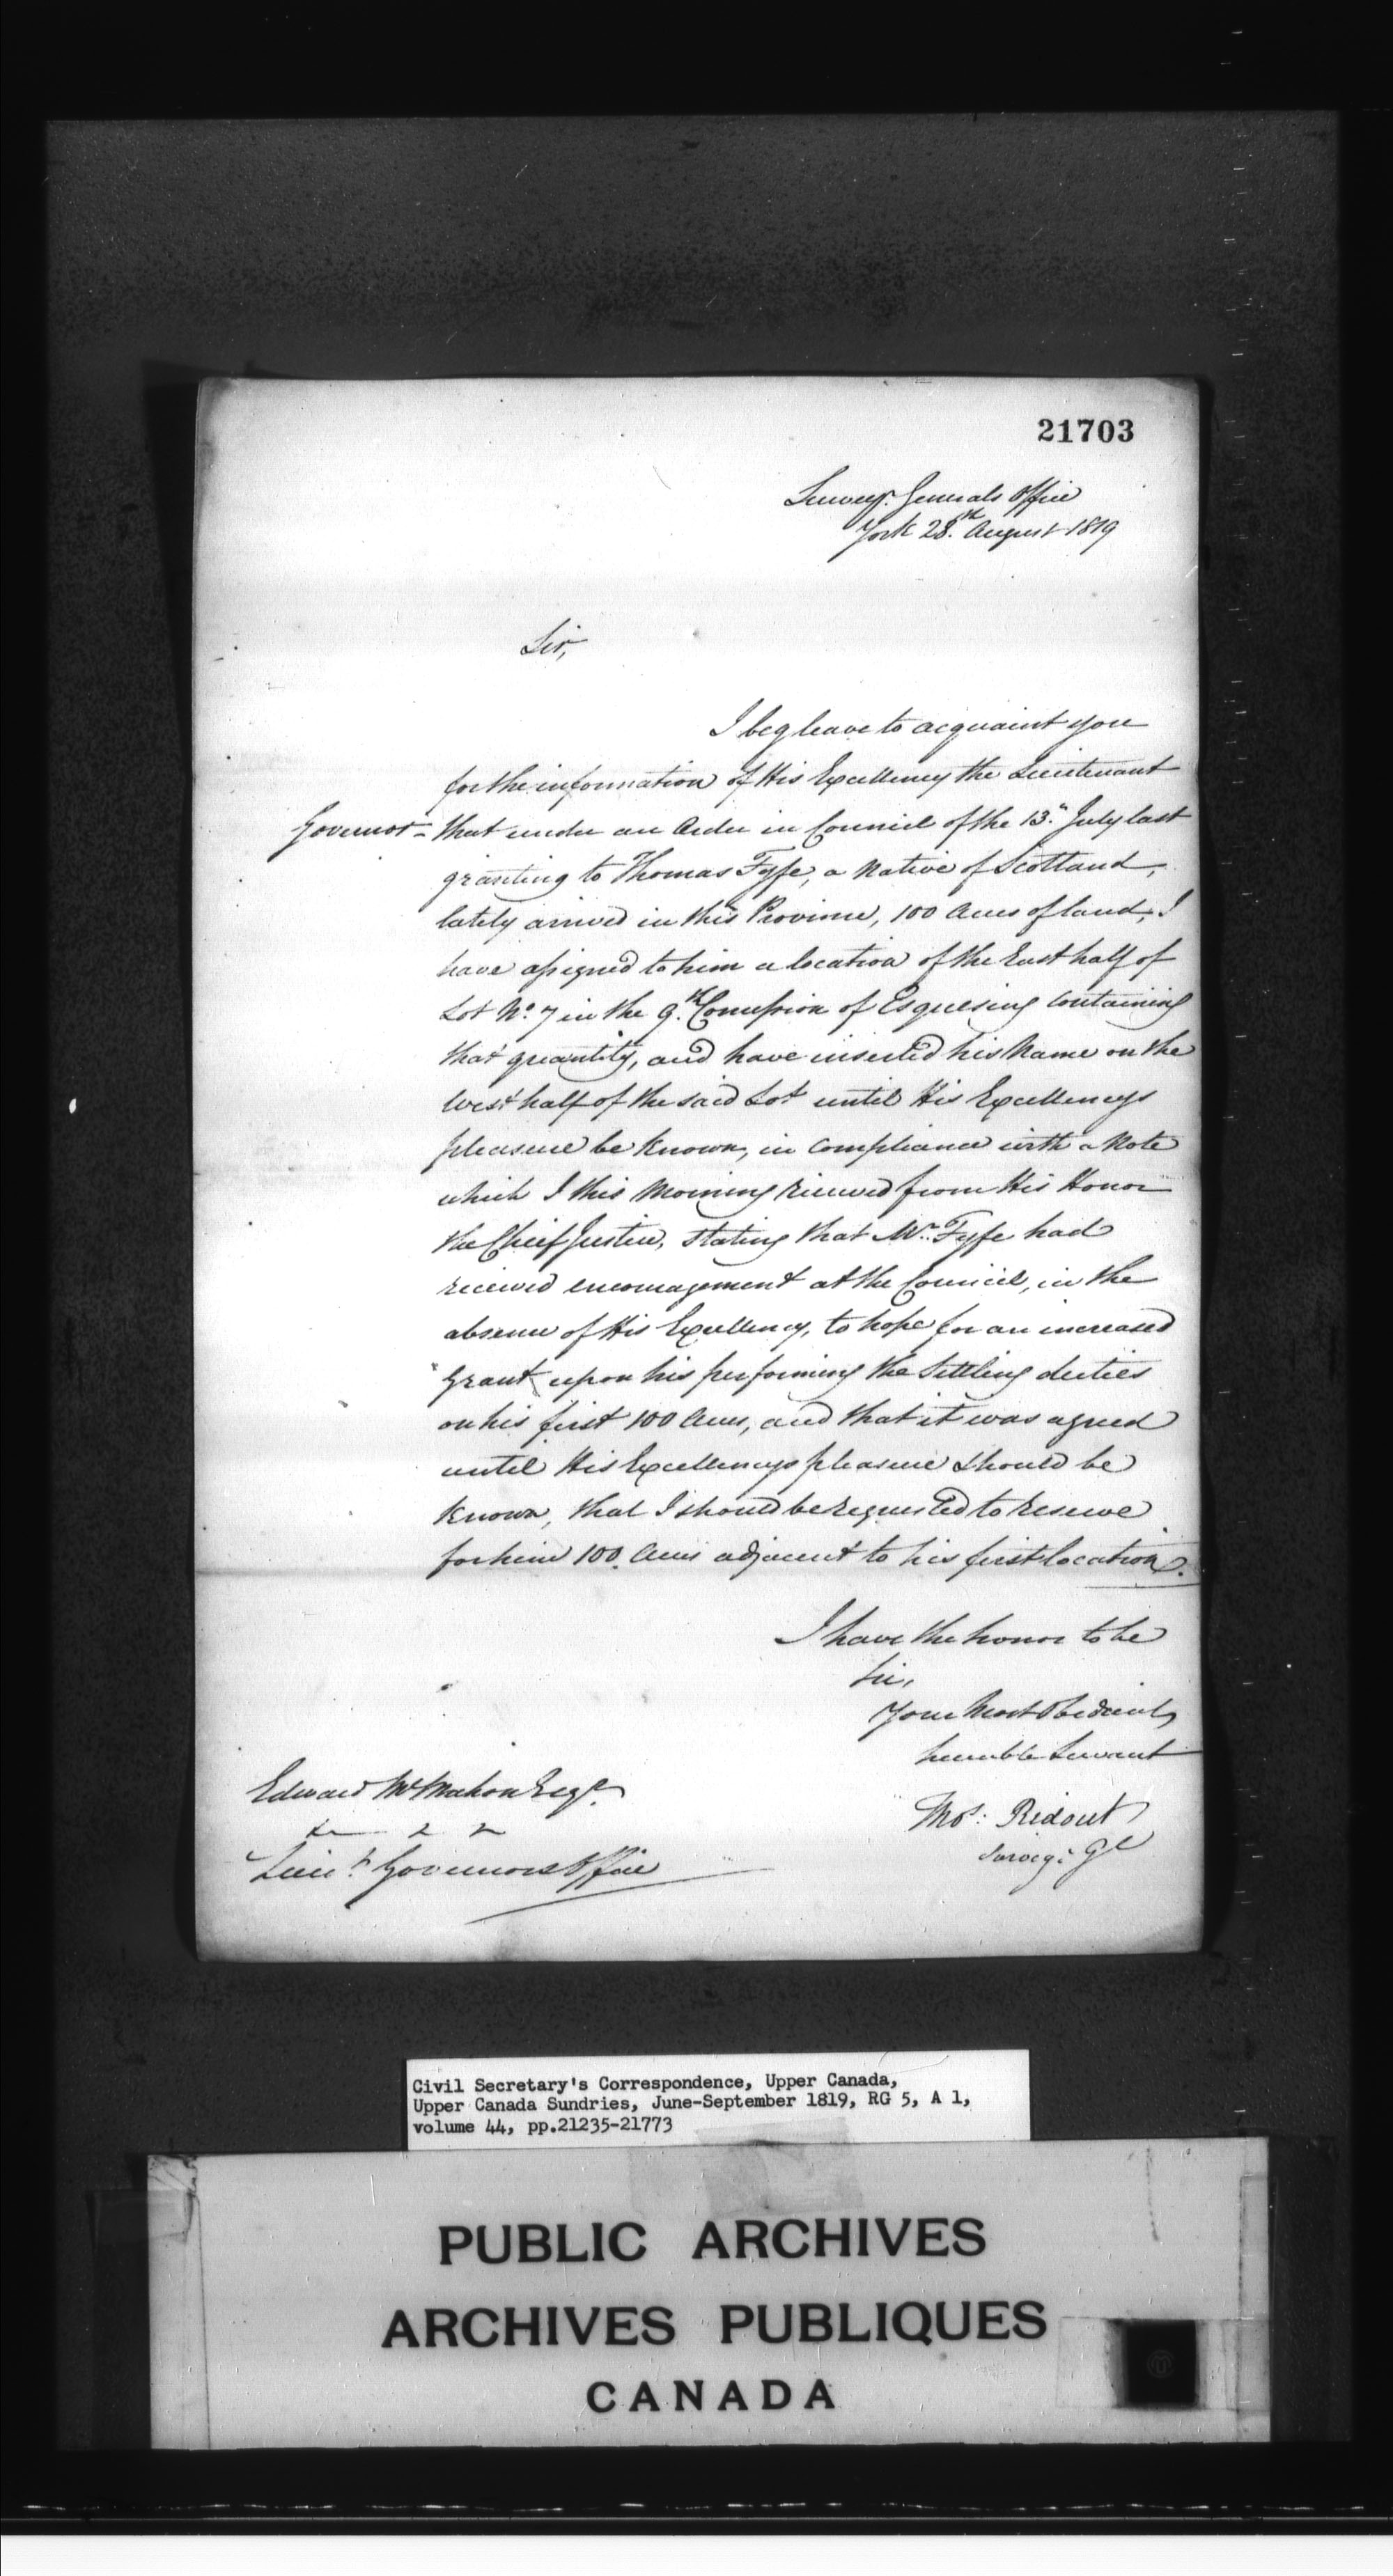 21703
Surveyr. Generals Office
York 28.th August 1819
Sir,
I beg leave to acquaint you
for the information of His Excellency the Lieutenant
Governor - that under an Order in Council of the 13.th July last
granting to Thomas Fyfe, a Native of Scotland,
lately arrived in this Province, 100 Acres of land, I
have assigned to him a location of the East half of
Lot No. 7 in the 9.th Concession of Esquesing containing
that quantity, and have inserted his Name on the
West half of the said Lot until His Excellencys
pleasure be known, in compliance with a Note
which I this Morning received from His Honor
the Chief Justice, stating that Mr. Fyfe had
received encouragement at the Council, in the
absence of His Excellency, to hope for an increased
Grant upon his performing the Settling duties
on his first 100 Acres, and that it was agreed
until His Excellencys pleasure should be
known, that I should be requested to reserve
for him 100 Acres adjacent to his first location.
I have the honor to be
Sir,
Your Most Obedient
humble Servant
Thos: Ridout
Surveyr. Gl
Edward McMahon Esqre.
Lieut. Governors Office
Civil Secretary's Correspondence, Upper Canada,
Upper Canada Sundries, June-September 1819, RG 5, A 1,
volume 44, pp.21235-21773
PUBLIC ARCHIVES
ARCHIVES PUBLIQUES
CANADA